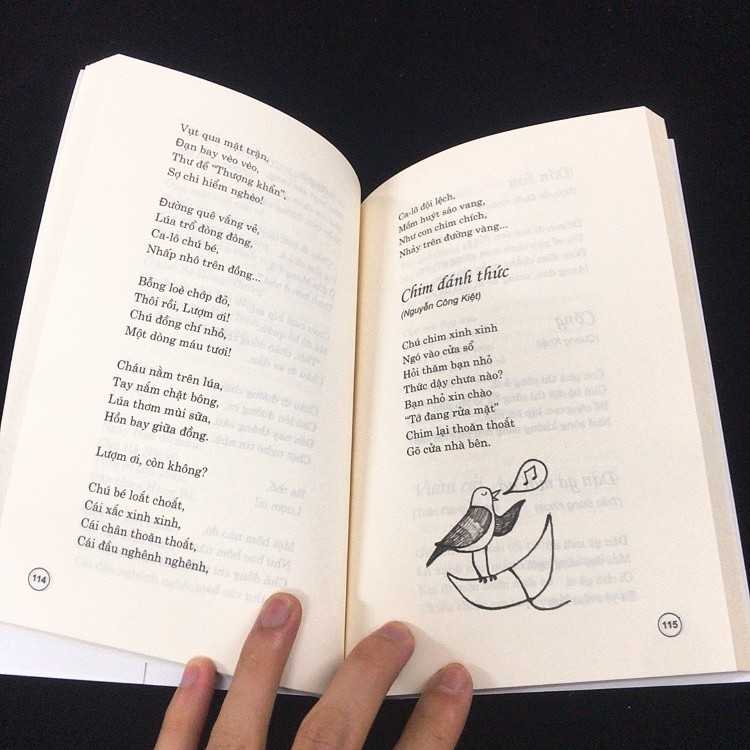 Vụt qua mặt trận,
Đạn bay vèo vèo,
Thư đề "Thượng khẩn",
Sợ chi hiểm nghèo!
Đường quê vắng vẻ,
Lúa trổ đòng đòng,
Ca-lô chú bé,
Nhấp nhô trên đồng...
Bỗng loè chớp đỏ,
Thôi rồi, Lượm ơi!
Chú đồng chí nhỏ,
Một dòng máu tươi!
Cháu nằm trên lúa,
Tay nắm chặt bông,
Lúa thơm mùi sữa,
Hồn bay giữa đồng.
Lượm ơi, còn không?
Chú bé loắt choắt,
Cái xắc xinh xinh,
Cái chân thoăn thoắt,
Cái đầu nghênh nghênh,
114
Ca-lô đội lệch,
Mồm huýt sáo vang,
Như con chim chích,
Nhảy trên đường vàng...
Chim đánh thức
(Nguyễn Công Kiệt)
Chú chim xinh xinh
Ngó vào cửa sổ
Hỏi thăm bạn nhỏ
Thức dậy chưa nào?
Bạn nhỏ xin chào
"Tớ đang rửa mặt"
Chim lại thoăn thoắt
Gõ cửa nhà bên.
115